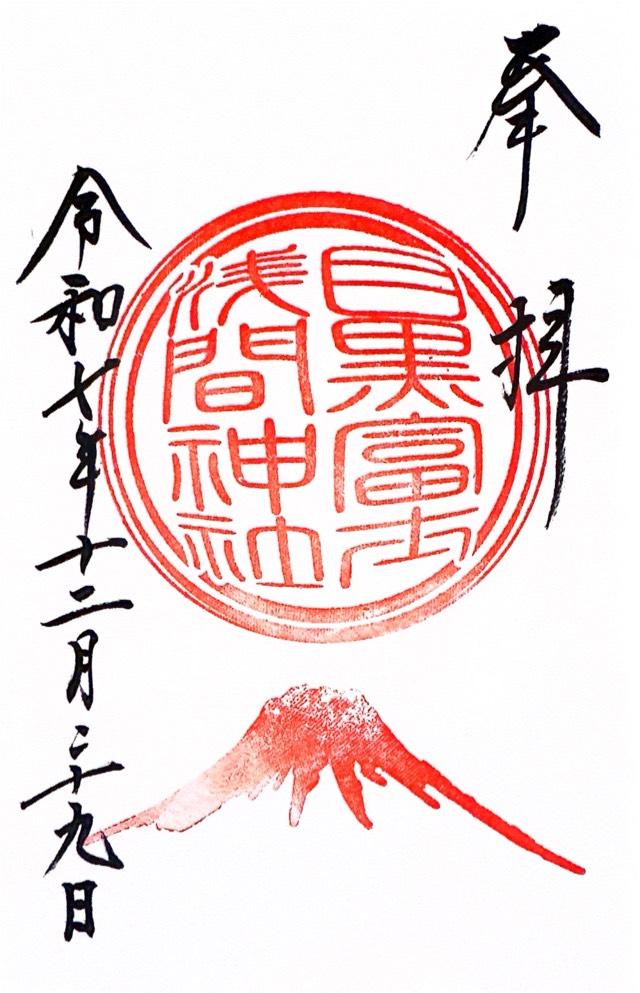 奉拝
目黒富士
浅間神社
令和七年十二月二十九日